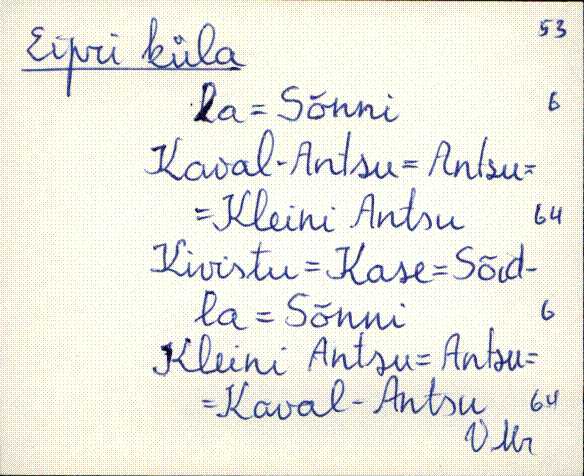 53
Eipri küla
la = Sõnni 6
Kaval-Antsu = Antsu =
= Kleini Antsu 64
Kivistu = Kase = Sõid-
la = Sõnni 6
Kleini Antsu = Antsu =
= Kaval-Antsu 64
VMr